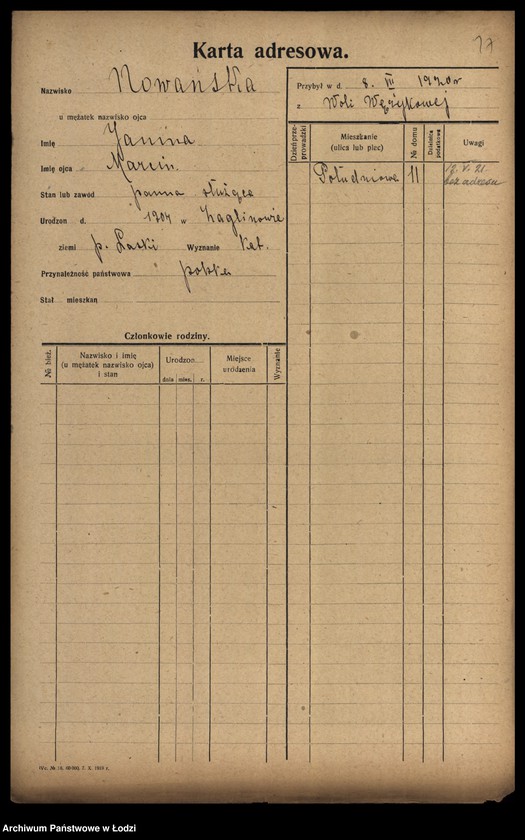 17
Karta adresowa.
Nazwisko Nowańska
u mężatek nazwisko ojca
Imię Janina
Imię ojca Marcin
Stan lub zawód panna służąca
Urodzon d. 1904 w Zaglinowie
ziemi p. Łaski Wyznanie kat.
Przynależność państwowa polska
Stał mieszkan
Przybył w d. 8. III 1920 r
z Woli Wężykowej
Dzień przeprowadzki
Mieszkanie (ulica lub plac)
№ domu
Dzielnica podatkowa
Uwagi
Południowa 11 19. V. 21.
bez adresu
Członkowie rodziny.
№ bież.
Nazwisko i imię
(u mężatek nazwisko ojca)
i stan
Urodzon
dnia mies. r.
Miejsce
urodzenia
Wyznanie
Archiwum Państwowe w Łodzi